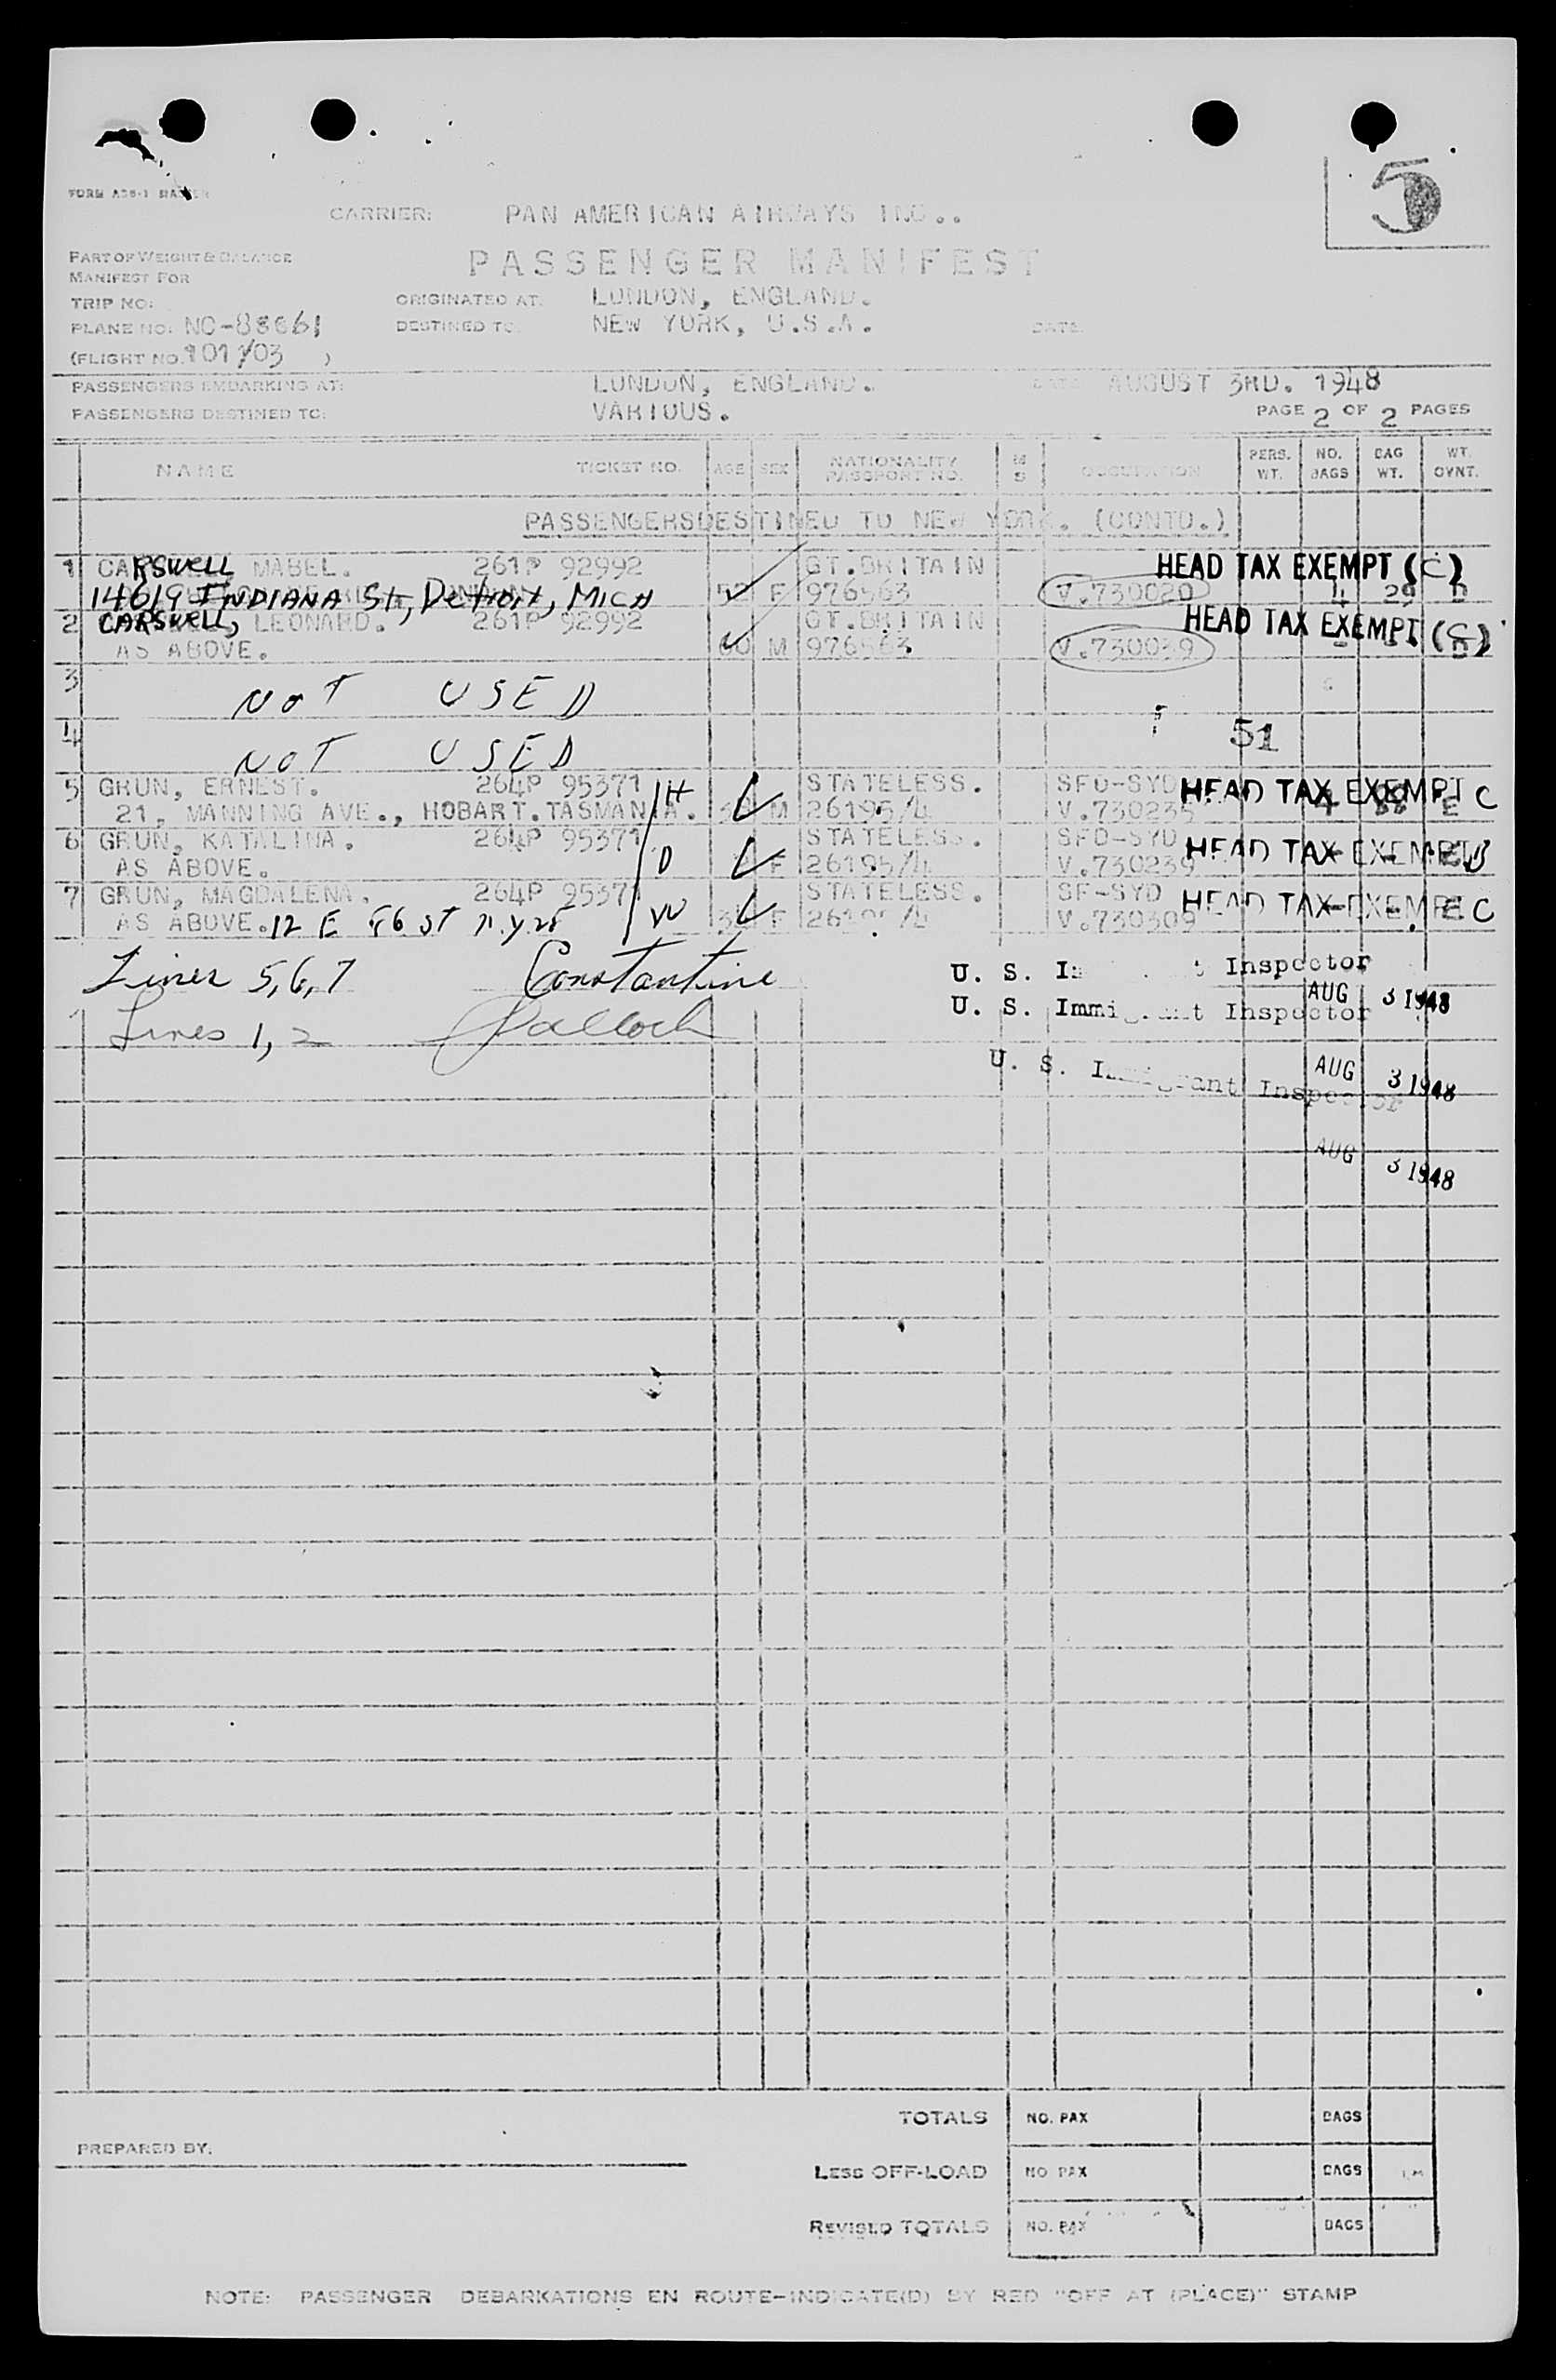 5
CARRIER: PAN AMERICAN AIRWAYS INC..
PART OF WEIGHT & BALANCE
MANIFEST FOR
PASSENGER MANIFEST
TRIP NO:
ORIGINATED AT: LONDON, ENGLAND.
PLANE NO: NC-88861
DESTINED TO: NEW YORK, U.S.A.
DATE:
(FLIGHT NO. 101/03 )
PASSENGERS EMBARKING AT: LONDON, ENGLAND. DATE: AUGUST 3RD. 1948
PASSENGERS DESTINED TO: VARIOUS. PAGE 2 OF 2 PAGES
NAME TICKET NO. AGE SEX NATIONALITY PASSPORT NO. M S OCCUPATION PERS. WT. NO. BAGS BAG WT. WT. OVNT.
PASSENGERS DESTINED TO NEW YORK. (CONTD.)
1 CARSWELL MABEL. 261P 92992 GT.BRITAIN HEAD TAX EXEMPT (C)
14619 INDIANA St, Detroit, MICH F 976563 V.730020 4 29 D
2 CARSWELL, LEONARD. 261P 92992 GT.BRITAIN HEAD TAX EXEMPT (C)
AS ABOVE. 60 M 976563 V.730039
3 NOT USED
4 NOT USED 51
5 GRUN, ERNEST. 264P 95371 H STATELESS. SFO-SYD HEAD TAX EXEMPT C
21, MANNING AVE., HOBART. TASMANIA. M 26195/4 V.730235 4 88 E
6 GRUN, KATALINA. 264P 95371 D STATELESS. SFO-SYD HEAD TAX EXEMPT
AS ABOVE. F 26195/4 V.730239
7 GRUN, MAGDALENA. 264P 95371 W STATELESS. SF-SYD HEAD TAX EXEMPT C
AS ABOVE. 12 E 86 ST N.Y. 28 F V.730309
Lines 5, 6, 7 Constantine U. S. Inspector
AUG 3 1948
Lines 1, 2 U. S. Immigrant Inspector
AUG 3 1948
U. S. Immigrant Inspector
AUG 3 1948
TOTALS NO. PAX BAGS
PREPARED BY:
LESS OFF-LOAD NO PAX BAGS
REVISED TOTALS NO. PAX BAGS
NOTE: PASSENGER DEBARKATIONS EN ROUTE-INDICATE(D) BY RED "OFF AT (PLACE)" STAMP